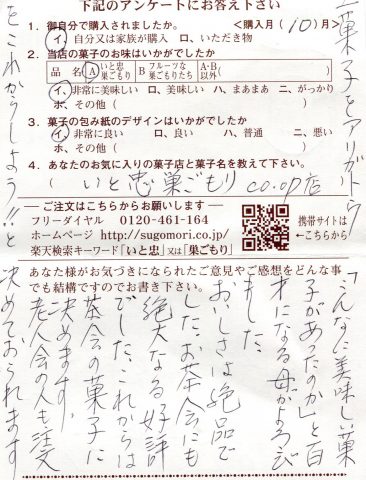 下記のアンケートにお答え下さい
1. 御自分で購入されましたか。 <購入月(10)月>
イ、自分又は家族が購入 ロ、いただき物
2. 当店の菓子のお味はいかがでしたか
品名 A いと忠巣ごもり B フルーツな巣ごもりたち A・B以外( )
イ、非常に美味しい ロ、美味しい ハ、まあまあ ニ、がっかり
ホ、その他( )
3. 菓子の包み紙のデザインはいかがでしたか
イ、非常に良い ロ、良い ハ、普通 ニ、悪い
ホ、その他( )
4. あなたのお気に入りの菓子店と菓子名を教えて下さい。
(いと忠巣ごもり co.op店)
ご注文はこちらからお願いします
フリーダイヤル 0120-461-164
ホームページ http://sugomori.co.jp/
楽天検索キーワード「いと忠」又は「巣ごもり」
携帯サイトは
←こちらから
あなた様がお気づきになられたご意見やご感想をどんな事
でも結構ですのでお書き下さい。
「こんなに美味しい菓
子があったのか」と百
才になる母がよろび
ました
おいしさは絶品で
した、お茶会にも
絶大なる好評
でした、これからは
茶会の菓子に
決めます、
老人会の人も注文
決めておられます
菓子をアリガトウ
をこれからしよう!!と